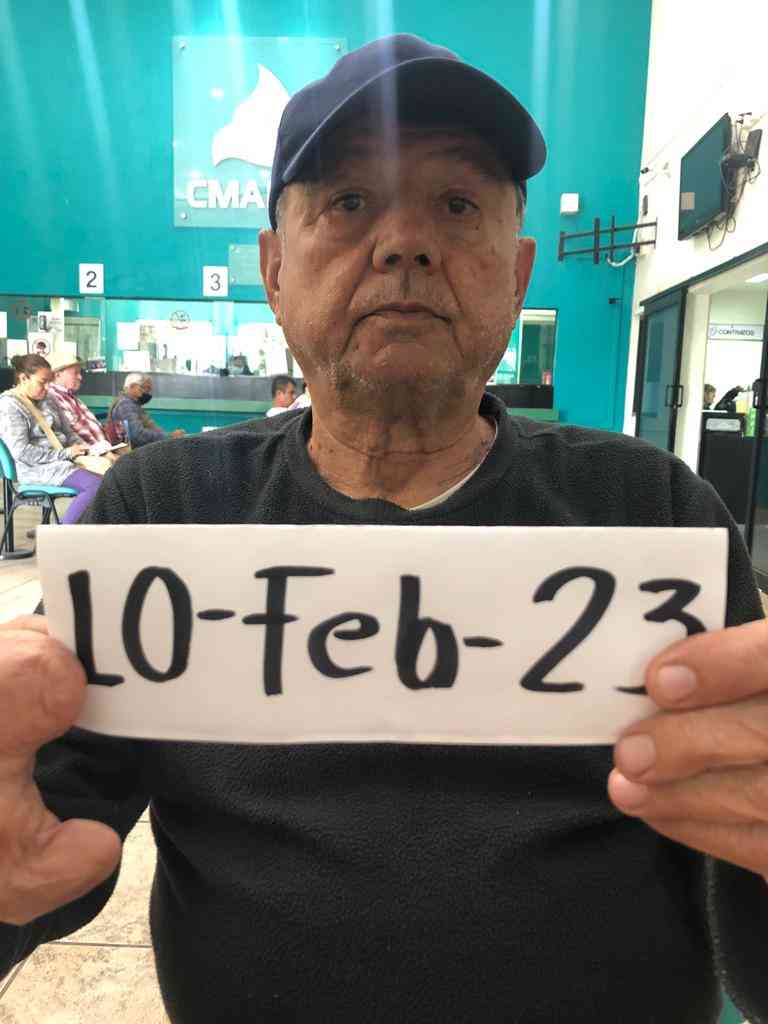 CMA
2
3
CONTRATOS
10-Feb-23